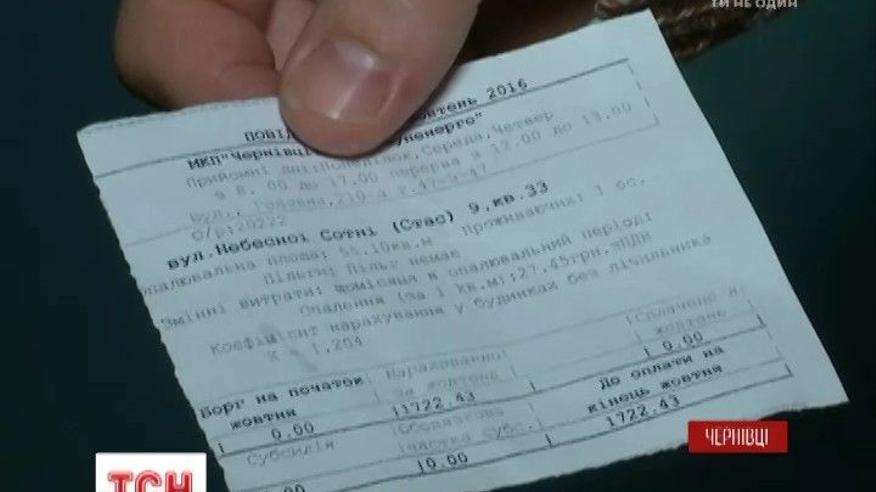 ТИ НЕ ОДИН
ПОВІД жовтень 2016
МКП "Чернівці уненерго"
Прийомні дні:Понеділок,Середа,Четвер
з 8.00 до 17.00 перерва з 12.00 до 13.00
вул., Головна,210-а т.47-9-47
О/р:20222
вул.Небесної Сотні (Стас) 9,кв.33
опалювальна площа: 55.10кв.м Проживаючих: 1 ос.
Пільги: Пільг немає
Змінні витрати: щомісяця в опалювальний період:
Опалення (за 1 кв.м):27.45грн.зПДВ
Коефіцієнт нарахування у будинках без лічильника
K = 1.204
Борг на початок жовтня
Нараховано за жовтень
Сплачено в жовтене
0.00
1722.43
0.00
Субсидія
Обовязкова частка субс.
До оплати на кінець жовтня
00
0.00
1722.43
ЧЕРНІВЦІ
ТСН